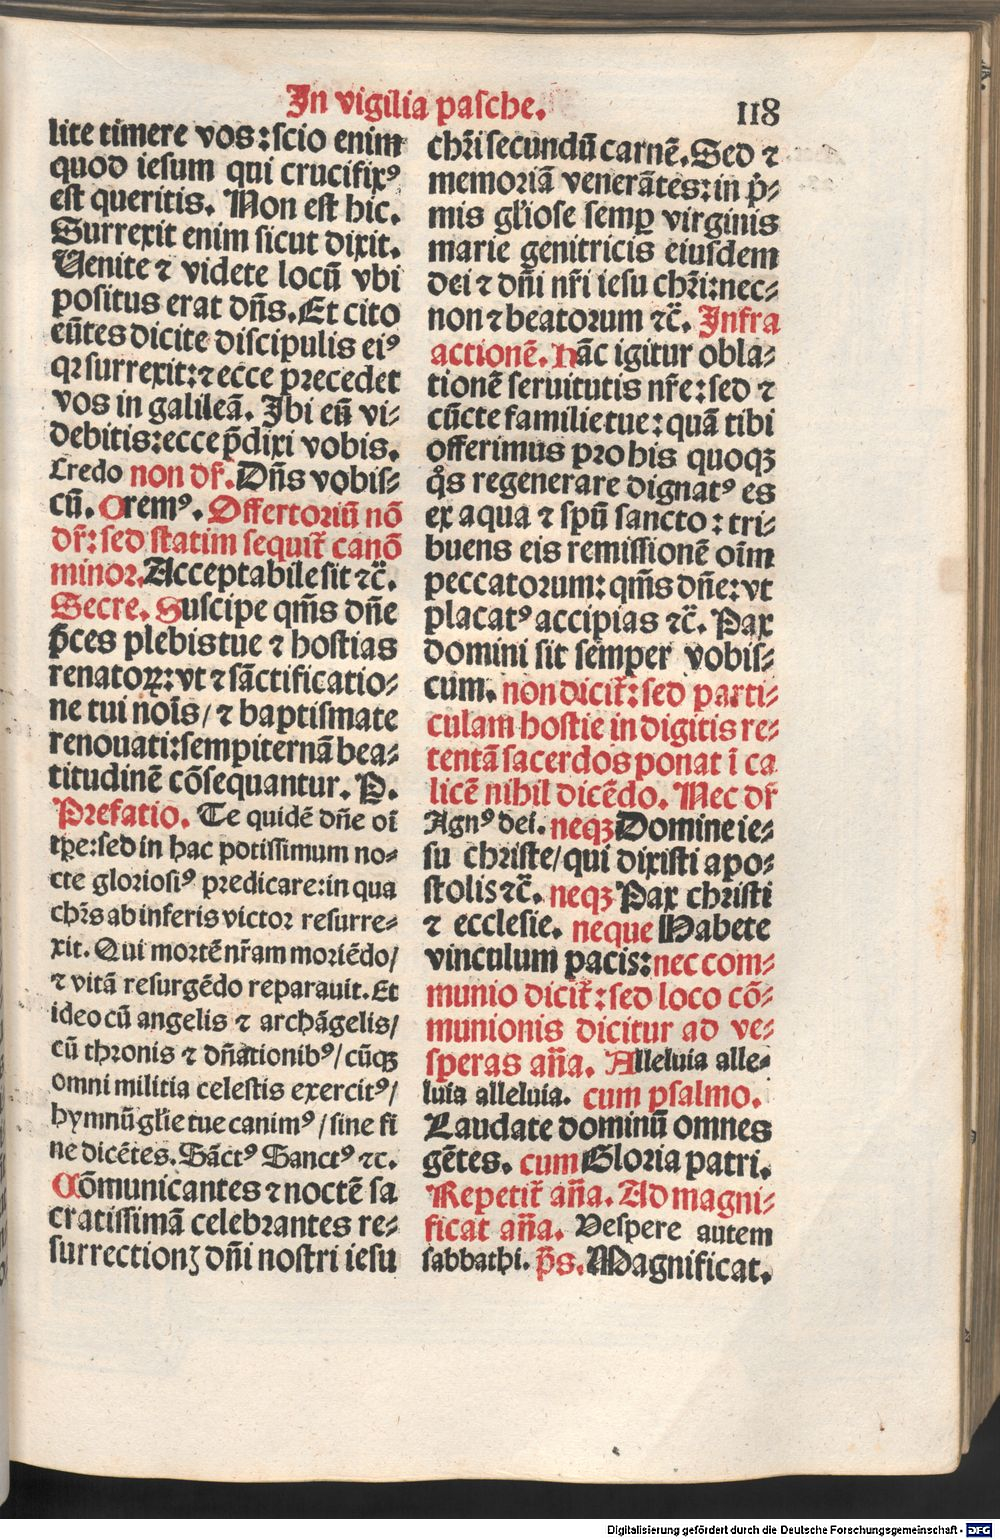 In vigilia pasche.
118
lite timere vos: scio enim
quod iesum qui crucifixꝰ
est queritis. Non est hic.
Surrexit enim sicut dixit.
Uenite ⁊ videte locū vbi
positus erat dn̄s. Et cito
eūtes dicite discipulis eiꝰ
qꝛ surrexit: ⁊ ecce precedet
vos in galileā. Ibi eū vi⸗
debitis: ecce p̄dixi vobis.
Credo non dr̄. Dn̄s vobis⸗
cū. Oremꝰ. Offertoriū nō
dr̄: sed statim sequit̄ canō
minor. Acceptabile sit ⁊c̄.
Secre. Suscipe qm̄s dn̄e
p̄ces plebis tue ⁊ hostias
renatoꝝ: vt ⁊ sāctificatio⸗
ne tui noīs/ ⁊ baptismate
renouati: sempiternā bea⸗
titudinē cōsequantur. P.
Prefatio. Te quidē dn̄e oī
tꝑe: sed in hac potissimum no⸗
cte gloriosiꝰ predicare: in qua
chr̄s ab inferis victor resurre⸗
xit. Qui mortē nr̄am moriēdo/
⁊ vitā resurgēdo reparauit. Et
ideo cū angelis ⁊ archāgelis/
cū thronis ⁊ dn̄ationibꝰ/ cūqꝫ
omni militia celestis exercitꝰ/
hymnū gl̄ie tue canimꝰ/ sine fi
ne dicētes. Sāctꝰ Sanctꝰ ⁊c.
Cōmunicantes ⁊ noctē sa
cratissimā celebrantes re⸗
surrectionꝫ dn̄i nostri iesu
chr̄i secundū carnē. Sed ⁊
memoriā venerātes: in p̄⸗
mis gl̄iose semꝑ virginis
marie genitricis eiusdem
dei ⁊ dn̄i nr̄i iesu chr̄i: nec⸗
non ⁊ beatorum ⁊c̄. Infra
actionē. Hāc igitur obla⸗
tionē seruitutis nr̄e: sed ⁊
cūcte familie tue: quā tibi
offerimus pro his quoqꝫ
qͦs regenerare dignatꝰ es
ex aqua ⁊ spū sancto: tri⸗
buens eis remissionē oīm
peccatorum: qm̄s dn̄e: vt
placatꝰ accipias ⁊c̄. Pax
domini sit semper vobis⸗
cum. non dicit̄: sed parti⸗
culam hostie in digitis re⸗
tentā sacerdos ponat ī ca
licē nihil dicēdo. Nec dr̄
Agnꝰ dei. neqꝫ Domine ie⸗
su christe/ qui dixisti apo⸗
stolis ⁊c̄. neqꝫ Pax christi
⁊ ecclesie. neque Habete
vinculum pacis: nec com⸗
munio dicit̄: sed loco cō⸗
munionis dicitur ad ve⸗
speras an̄a. Alleluia alle⸗
luia alleluia. cum psalmo.
Laudate dominū omnes
gētes. cum Gloria patri.
Repetit̄ an̄a. Ad magni⸗
ficat an̄a. Vespere autem
sabbathi. p̄s. Magnificat.
Digitalisierung gefördert durch die Deutsche Forschungsgemeinschaft - DFG